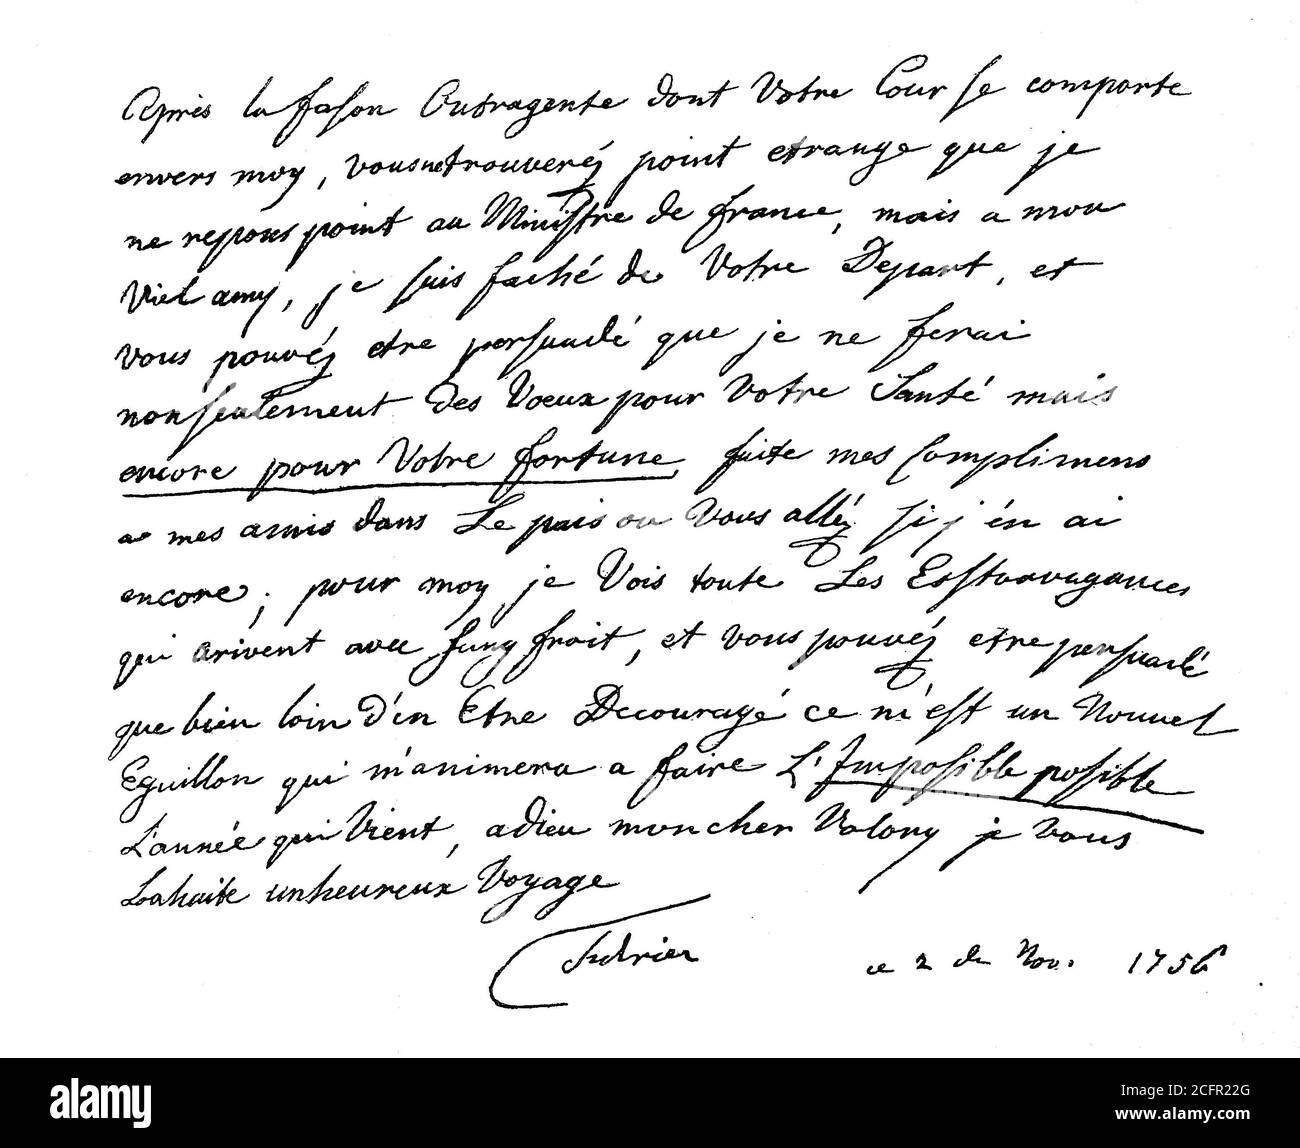 Après la fason Outragente dont Votre Cour se comporte
envers moy, vous ne trouveréz point etrange que je
ne repons point au Ministre de france, mais a mon
Viel amy, je suis faché de Votre Depart, et
vous pouvéz etre persuadé que je ne ferai
non seulement des Vœux pour Votre Santé mais
encore pour Votre fortune, faite mes Complimens
a mes amis dans Le païs ou Vous alléz si j'én ai
encore, pour moy, je Vois toute Les Esstravagances
qui arivent avec sang froit, et vous pouvéz etre persuadé
que bien loin d'én Etre Decouragé ce m'est un Nouvel
Eguillon qui m'animera a faire L'Imposible posible
L'année qui Vient, adieu mon cher Valory je vous
Sahaite un heureux Voyage
ce 2 de Nov. 1756
alamy
Image ID: 2CFR22G
www.alamy.com